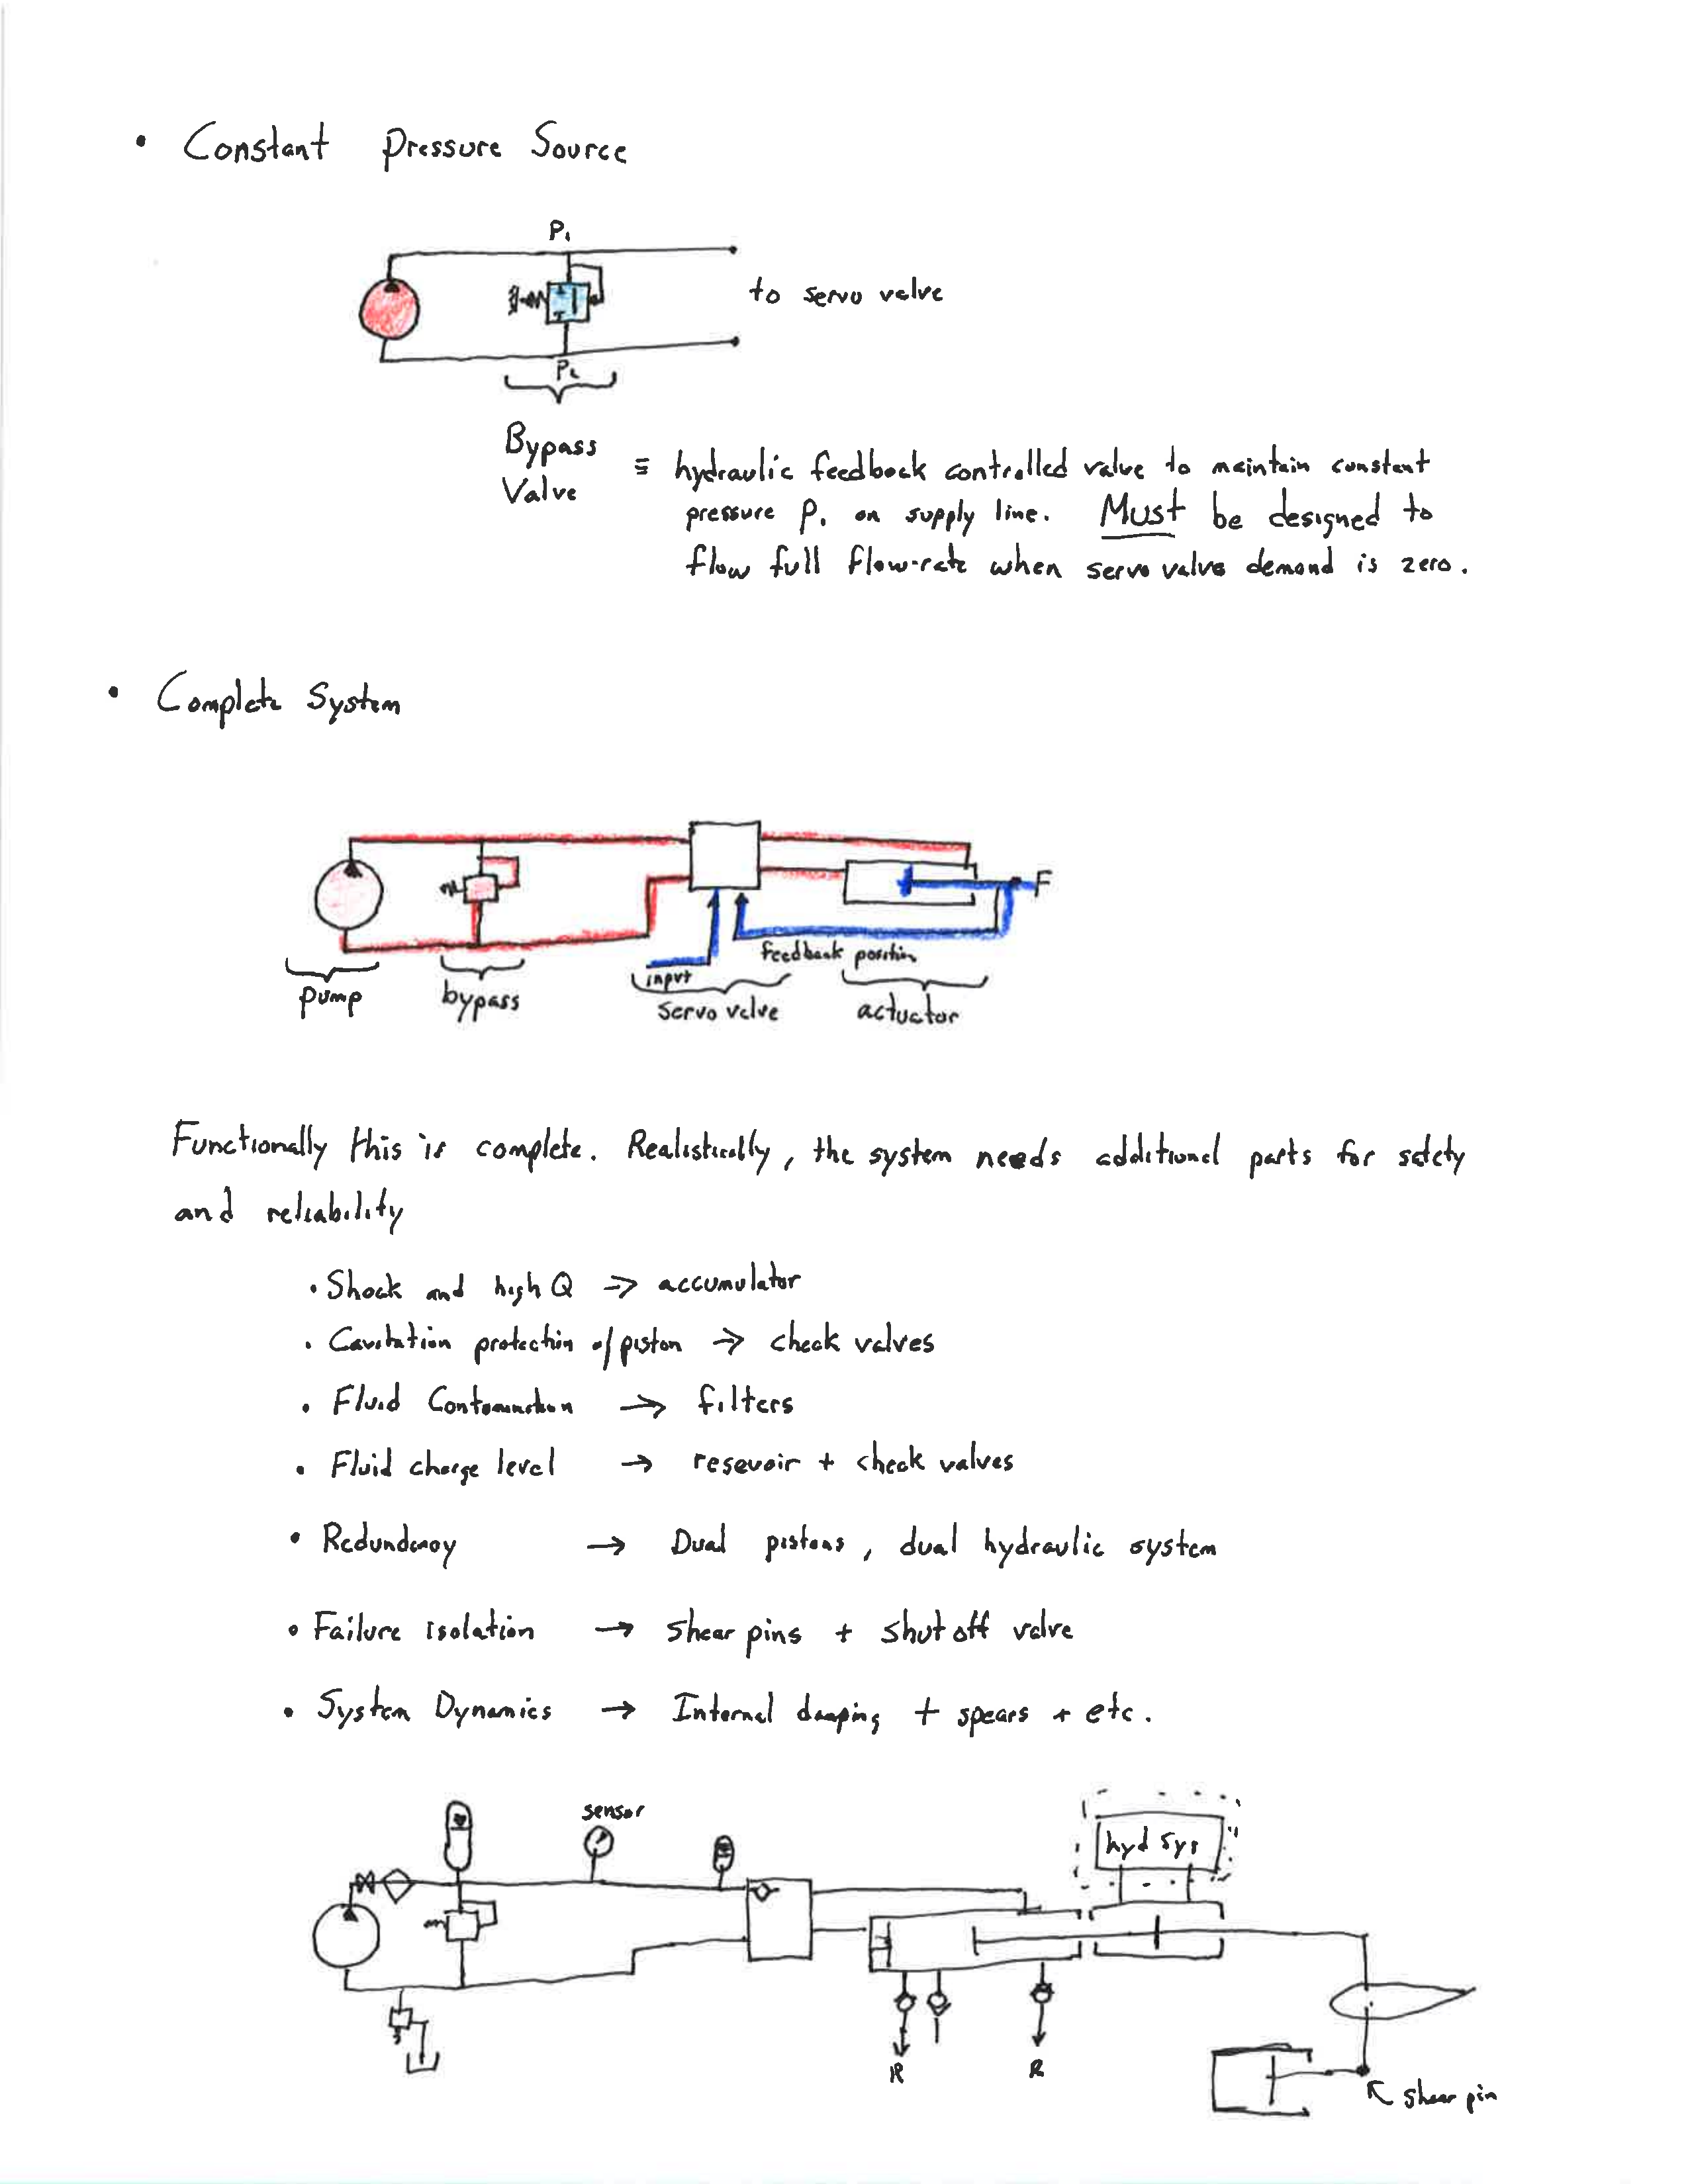 • Constant Pressure Source
P₁
to servo valve
P₂
Bypass
Valve
≡ hydraulic feedback controlled valve to maintain constant
pressure P₁ on supply line. Must be designed to
flow full flow-rate when servo valve demand is zero.
• Complete System
F
feedback position
input
pump
bypass
servo valve
actuator
Functionally this is complete. Realistically, the system needs additional parts for safety
and reliability
• Shock and high Q → accumulator
• Cavitation protection of piston → check valves
• Fluid Contamination → filters
• Fluid charge level → resevoir + check valves
• Redundancy → Dual pistons, dual hydraulic system
• Failure isolation → shear pins + shut off valve
• System Dynamics → Internal damping + spears + etc.
sensor
hyd sys
R
R
shear pin